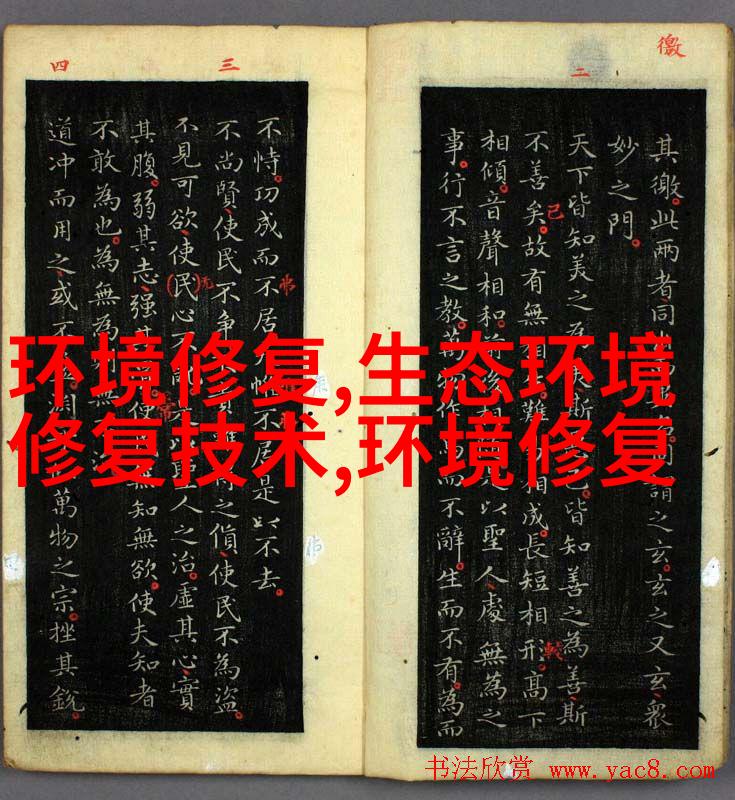 徼
二
其徼。此两者同謂之玄。玄之又玄。衆
妙之門。
天下皆知美之為斯皆知善之為善斯
不善矣。故有無相難相成。長短相形。髙下
相傾。音聲相和。以聖人處無為之
事。行不言之教。萬物作而不辭。生而不有。為而
已
三
四
不恃。功成而不居惟不居是以不去。
不尚賢使民不争之貨使民不為盗。
不見可欲使民心不聖人之治。虚其心實
其腹。弱其志强其使無知無欲。使夫知者
不敢為也。為無為無
道冲而用之或不萬物之宗。挫其銳
无
常
环境修复,生态环境
修复技术,环境修复
书法欣赏 www.yac8.com